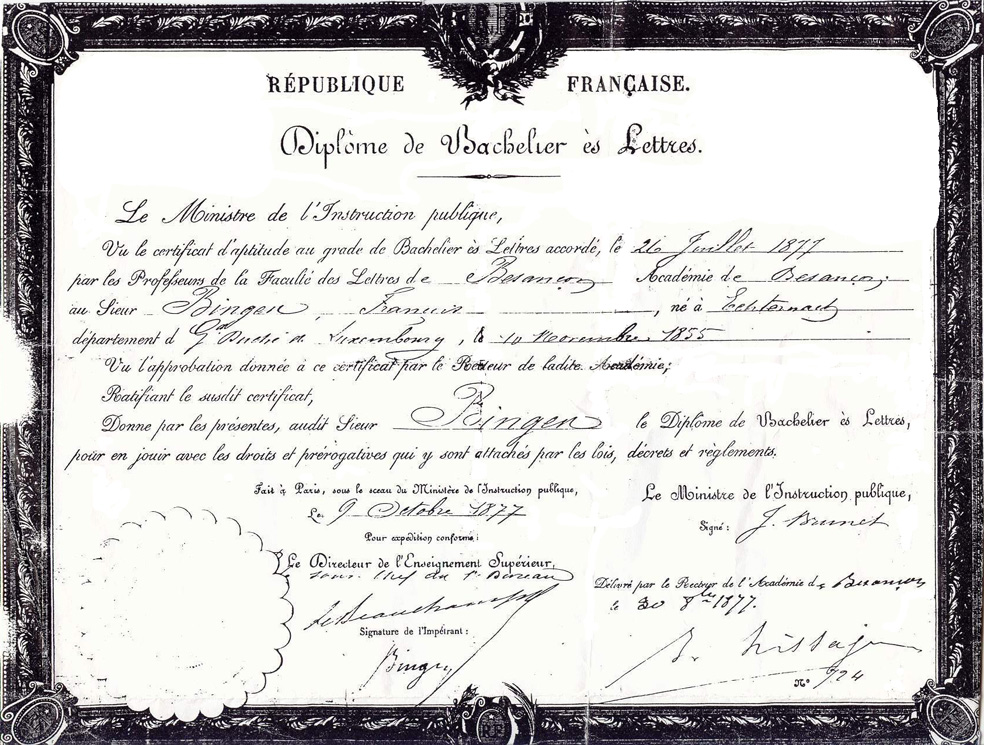 RÉPUBLIQUE FRANÇAISE.
Diplôme de Bachelier ès Lettres.
Le Ministre de l'Instruction publique,
Vu le certificat d'aptitude au grade de Bachelier ès Lettres accordé, le 26 Juillet 1877
par les Professeurs de la Faculté des Lettres de Besançon Académie de Besançon;
au Sieur Bingen, Francois, né à Echternach
département d Gd Duché de Luxembourg, le 10 Novembre 1855
Vu l'approbation donnée à ce certificat par le Recteur de ladite Académie;
Ratifiant le susdit certificat,
Donne par les présentes, audit Sieur Bingen le Diplôme de Bachelier ès Lettres,
pour en jouir avec les droits et prérogatives qui y sont attachés par les lois, décrets et règlements.
Fait à Paris, sous le sceau du Ministère de l'Instruction publique,
Le 9 Octobre 1877
Pour expédition conforme:
Le Directeur de l'Enseignement Supérieur,
Sous Chef du 1er Bureau
Signature de l'Impétrant:
Bingen
Le Ministre de l'Instruction publique,
Signé: J. Brunet
Délivré par le Recteur de l'Académie de Besançon
le 30 8bre 1877.
N° 724